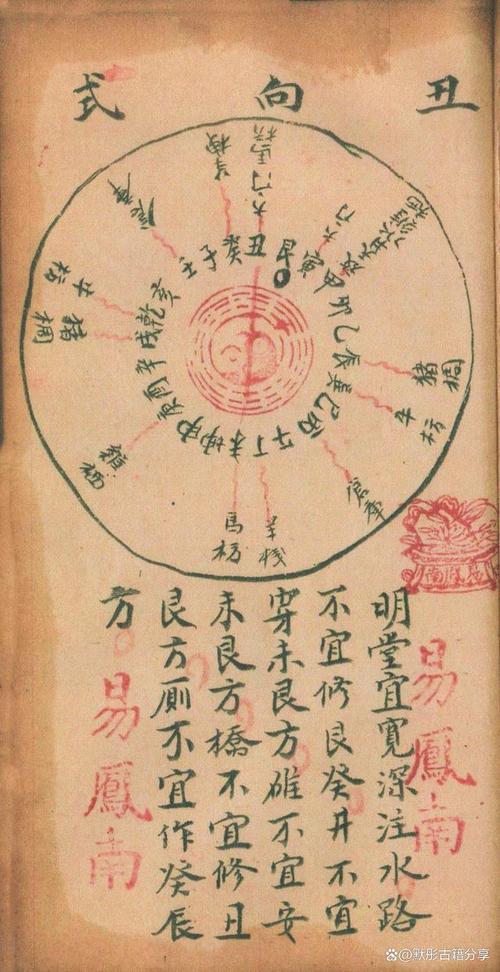 丑向式
馬枋
大门
羊棧
猪椆
牛枋
羊棧
馬枋
猪椆
牛枋
壬子癸丑艮寅甲卯乙辰巽巳丙午丁未坤申庚酉辛戌乾亥
易鳳南
明堂宜寬深注水路
不宜修艮癸井不宜
穿未艮方碓不宜安
未艮方橋不宜修丑
艮方厠不宜作癸辰
方
易鳳南
@默彤古籍分享